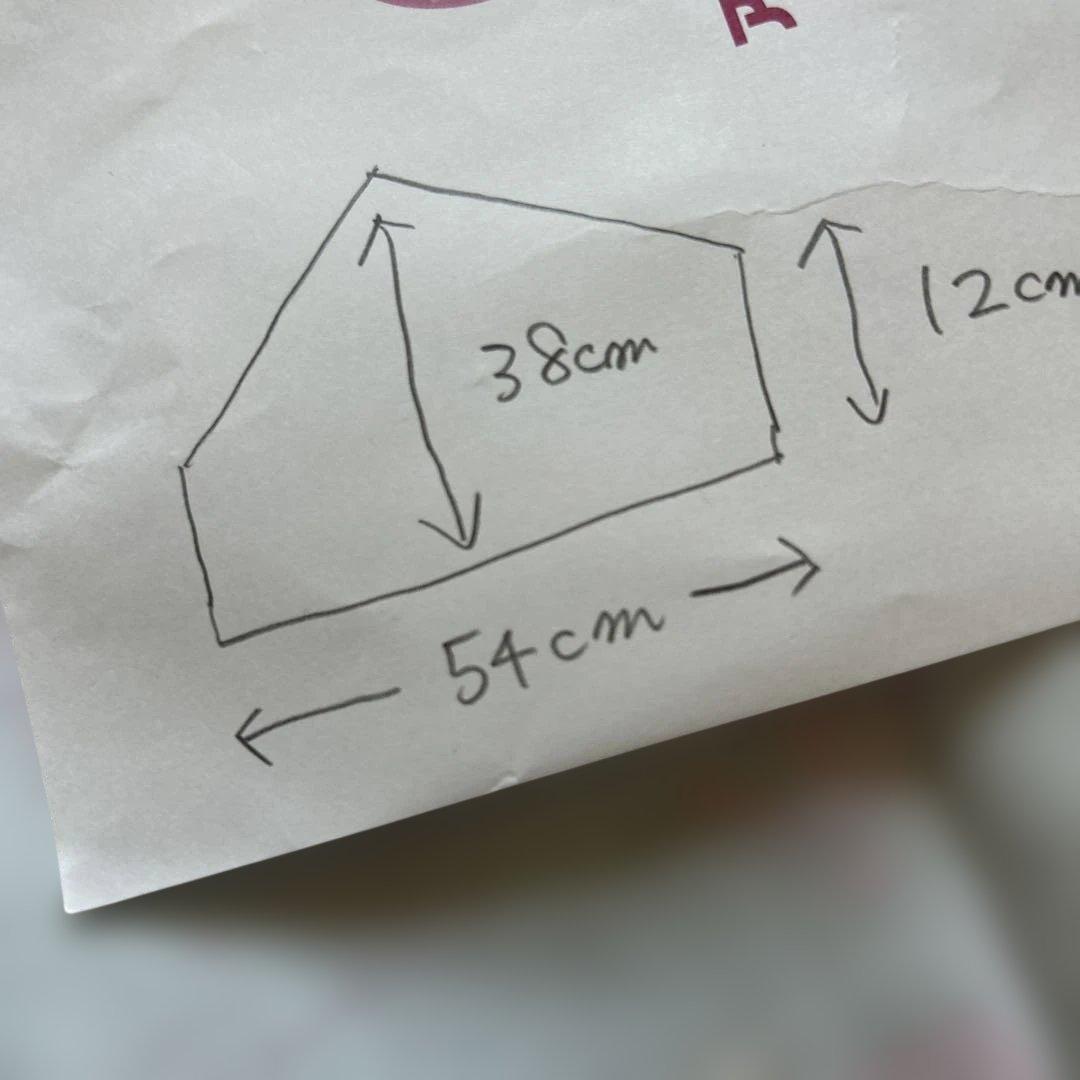 38cm
12cm
54cm